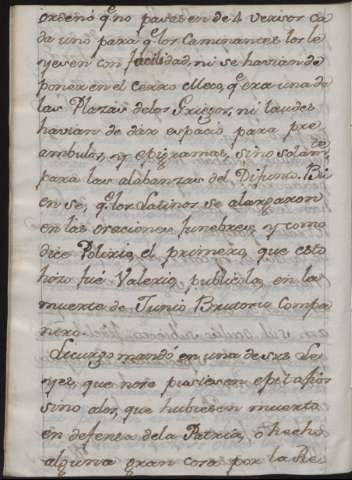 ordenó q̃ no pasesen de 4 versos ca
da uno para q̃ los Caminantes los le
yesen con facilidad, ni se havian de
poner en el cerro, q̃ era una de
las Plazas de los Griegos, ni laudes
havian de dar espacio para pre
ambulos, y epigramas, sino solam.te
para las alabanzas del Difunto. Bi
en se, q̃ los Latinos se alargaron
en las oraciones funebres, y como
dice Polivio, el primero, que esto
hizo fué Valerio publicola, en la
muerte de Junio Bruto su Compa
ñero.
Licurgo mandó en una de sus Le
yes, que no se pusiesen epitafios
sino alos, que hubiesen muerto
en defensa dela Patria, o hecho
alguna gran cosa por la Re